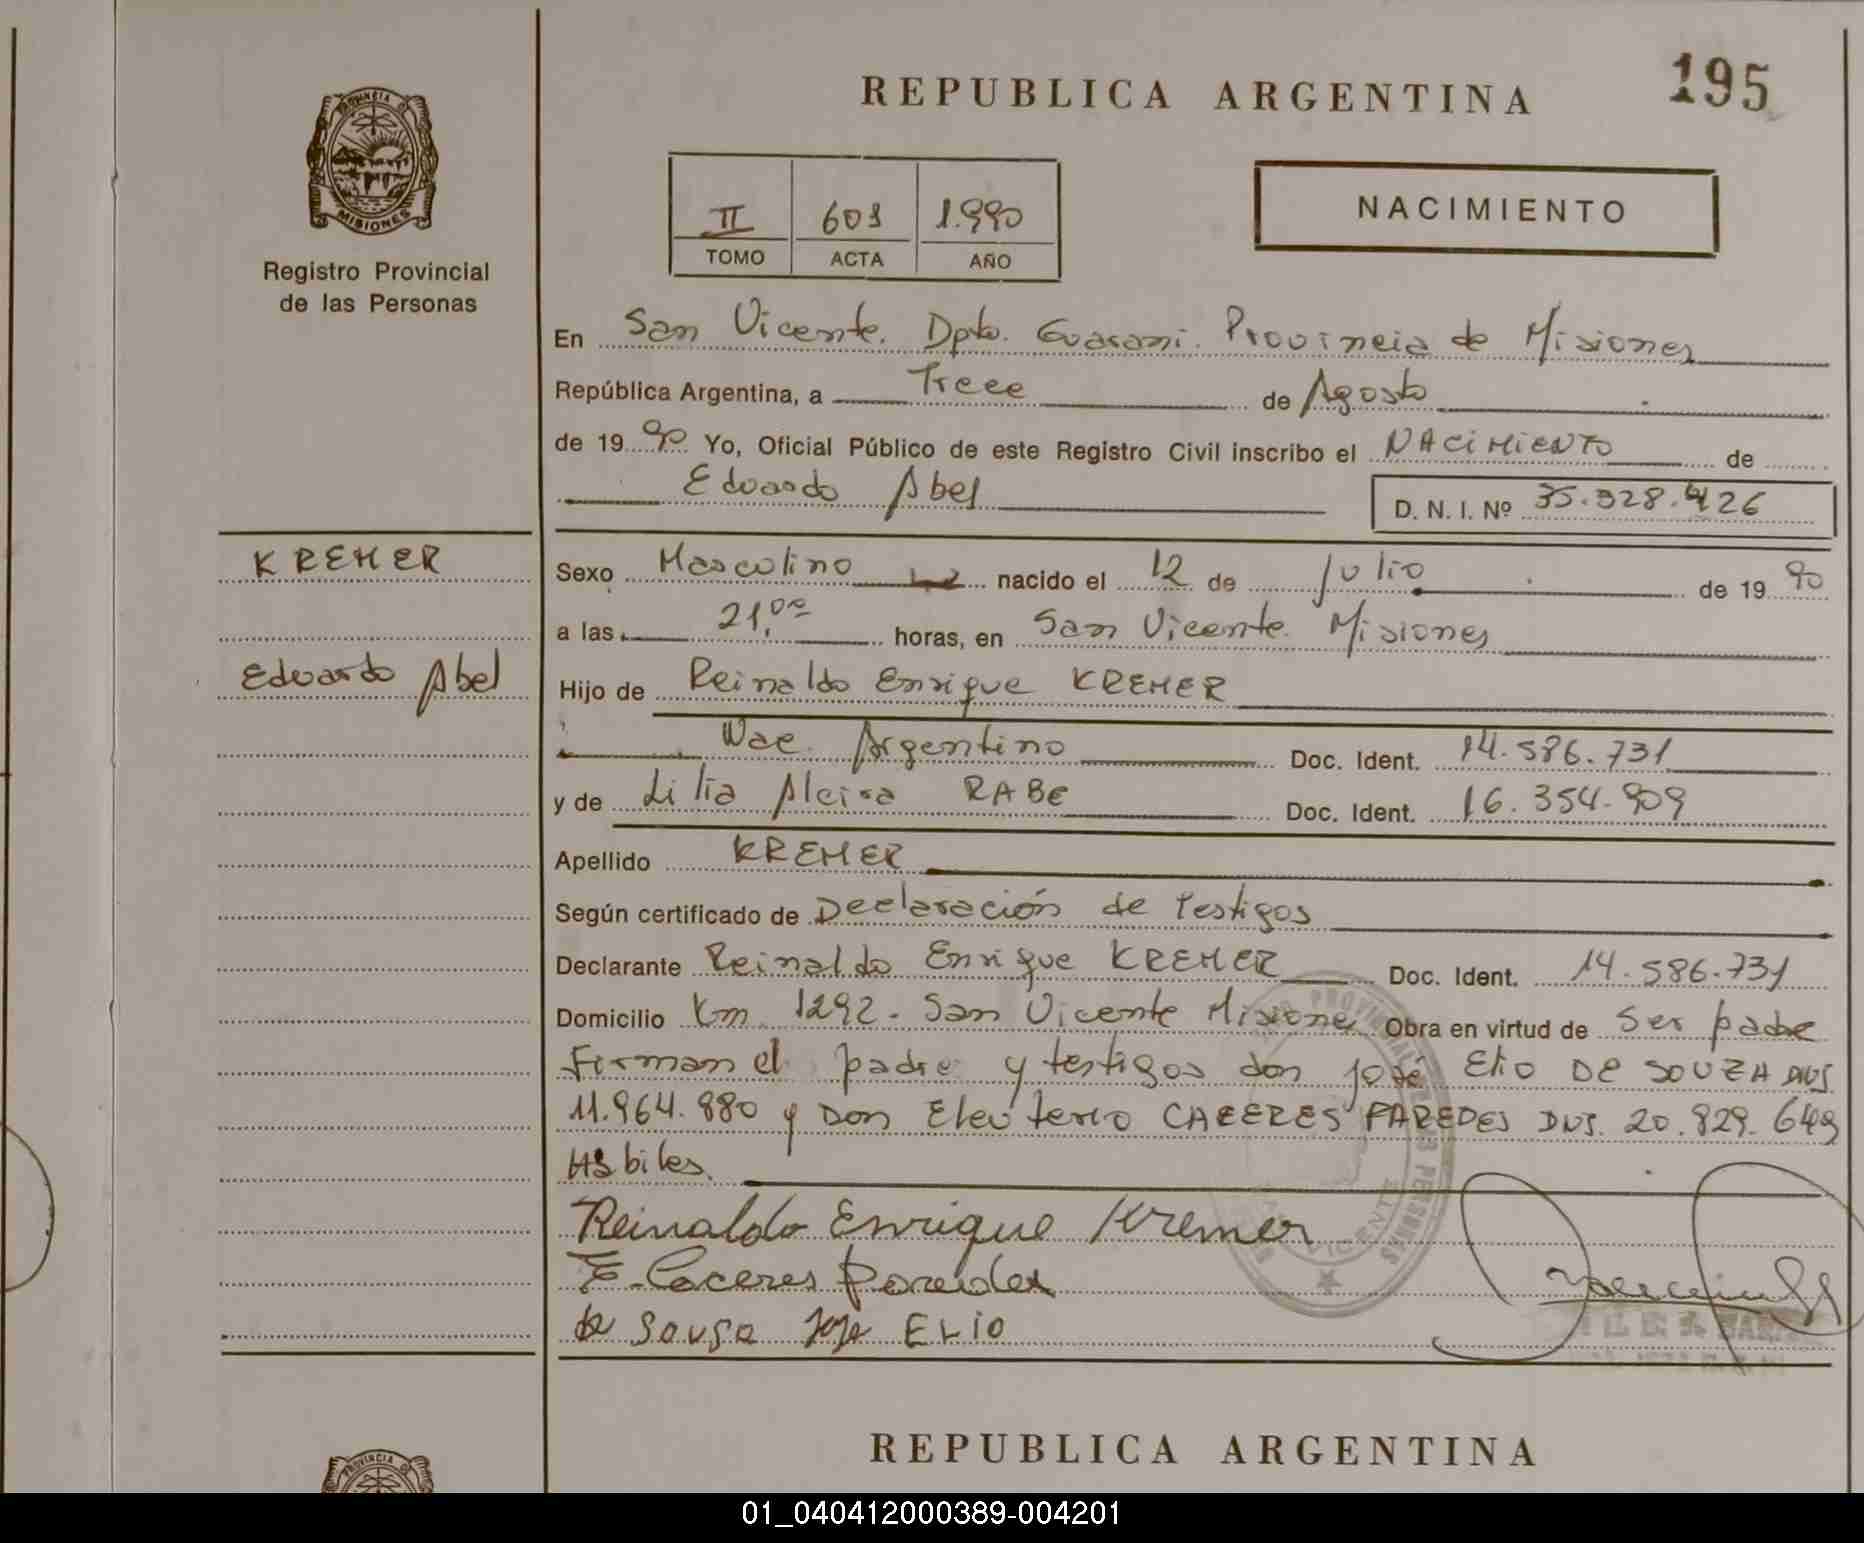 REPUBLICA ARGENTINA
195
PROVINCIA DE
MISIONES
Registro Provincial
de las Personas
II 601 1.990
TOMO ACTA AÑO
NACIMIENTO
En San Vicente. Dpto. Guarani. Provincia de Misiones
República Argentina, a Trece de Agosto
de 1990 Yo, Oficial Público de este Registro Civil inscribo el NACIMIENTO de
Eduardo Abel D. N. I. Nº 35.328.426
KREMER
Sexo Masculino nacido el 12 de Julio de 1990
a las 21,00 horas, en San Vicente. Misiones
Eduardo Abel
Hijo de Reinaldo Enrique KREMER
Nac. Argentino Doc. Ident. 14.586.731
y de Lilia Alcira RABE Doc. Ident. 16.354.909
Apellido KREMER
Según certificado de Declaración de Testigos
Declarante Reinaldo Enrique KREMER Doc. Ident. 14.586.731
Domicilio Km 1292. San Vicente Misiones Obra en virtud de ser padre
Firman el padre y testigos don José Elio DE SOUZA DNI.
11.964.880 y Don Eleuterio CACERES PAREDES DNI. 20.829.649
Habiles
Reinaldo Enrique Kremer
E. Caceres Paredes
de Sousa Jose ELIO
REPUBLICA ARGENTINA
PROVINCIA DE
01_040412000389-004201